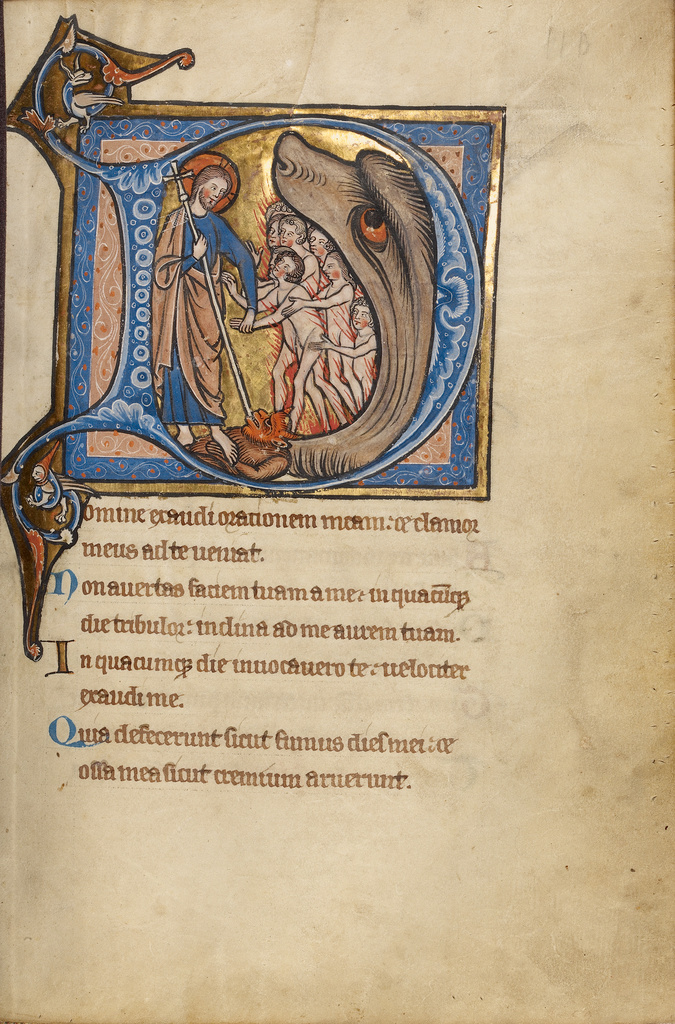 Domine exaudi orationem meam: et clamor
meus ad te ueniat.
Non auertas faciem tuam a me: in quacūq;
die tribulor: inclina ad me aurem tuam.
In quacumq; die inuocauero te: uelociter
exaudi me.
Quia defecerunt sicut fumus dies mei: et
ossa mea sicut cremium aruerunt.